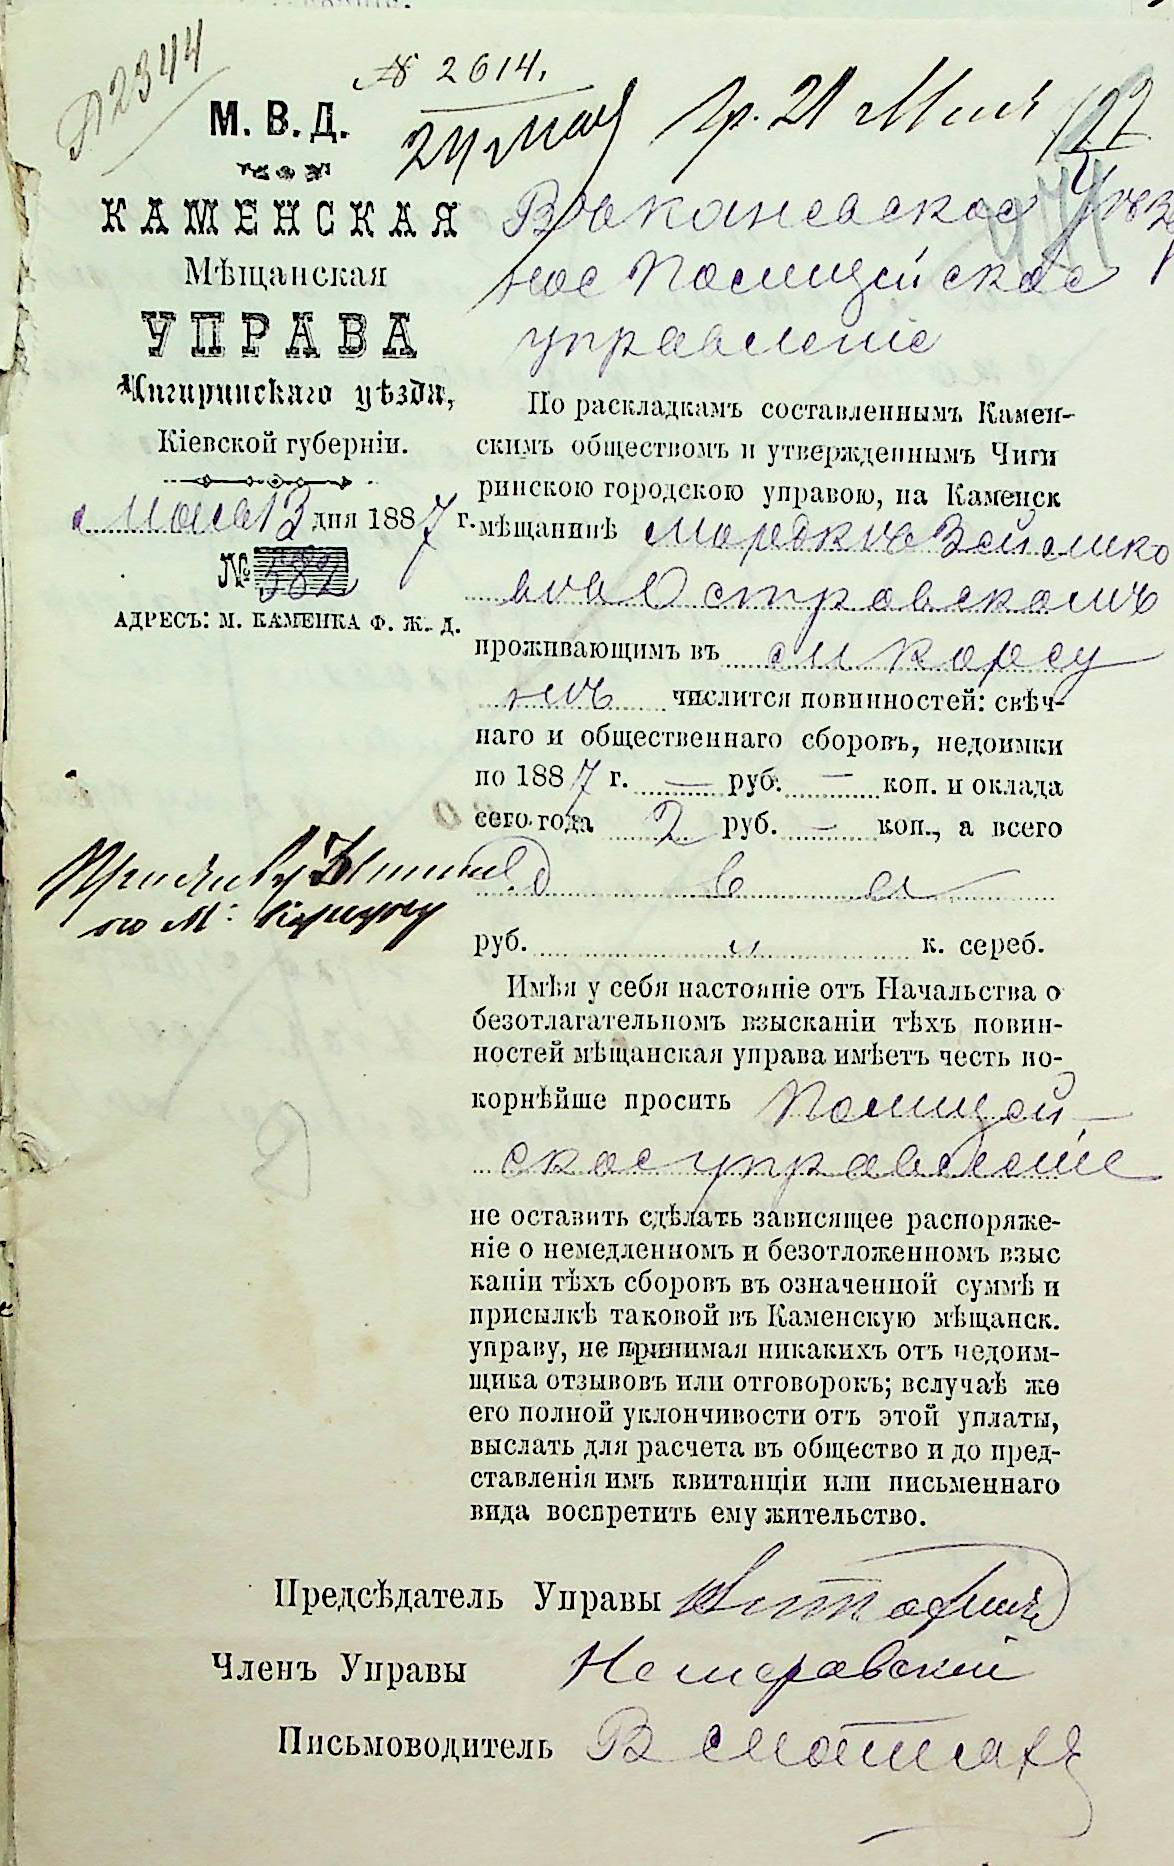 № 2344
№ 2614.
24 мая
Пр. 21 Мая
М. В. Д.
КАМЕНСКАЯ
Мѣщанская
УПРАВА
Чигиринскаго уѣзда,
Кіевской губерніи.
мая 13 дня 1887 г.
№ 582
АДРЕСЪ: М. КАМЕНКА Ф. Ж. Д.
Въ Каневское Уѣзд
ное Полицейское
управленіе
По раскладкамъ составленнымъ Камен-
скимъ обществомъ и утвержденнымъ Чиги
ринскою городскою управою, на Каменск
мѣщанинѣ Мордкѣ Зейлико
вѣ Островскомъ
проживающимъ въ м Корсу
нѣ числится повинностей: свѣч-
наго и общественнаго сборовъ, недоимки
по 1887 г. — руб. — коп. и оклада
сего года 2 руб. — коп., а всего
два
руб. и к. сереб.
Имѣя у себя настояніе отъ Начальства о
безотлагательномъ взысканіи тѣхъ повин-
ностей мѣщанская управа имѣетъ честь по-
корнѣйше просить Полицей-
ское управленіе
не оставить сдѣлать зависящее распоряже-
ніе о немедленномъ и безотложенномъ взыс
каніи тѣхъ сборовъ въ означенной суммѣ и
присылкѣ таковой въ Каменскую мѣщанск.
управу, не принимая никакихъ отъ недоим-
щика отзывовъ или отговорокъ; вслучаѣ же
его полной уклончивости отъ этой уплаты,
выслать для расчета въ общество и до пред-
ставленія имъ квитанціи или письменнаго
вида воспретить ему жительство.
Предсѣдатель Управы
Членъ Управы Немеровскій
Письмоводитель В